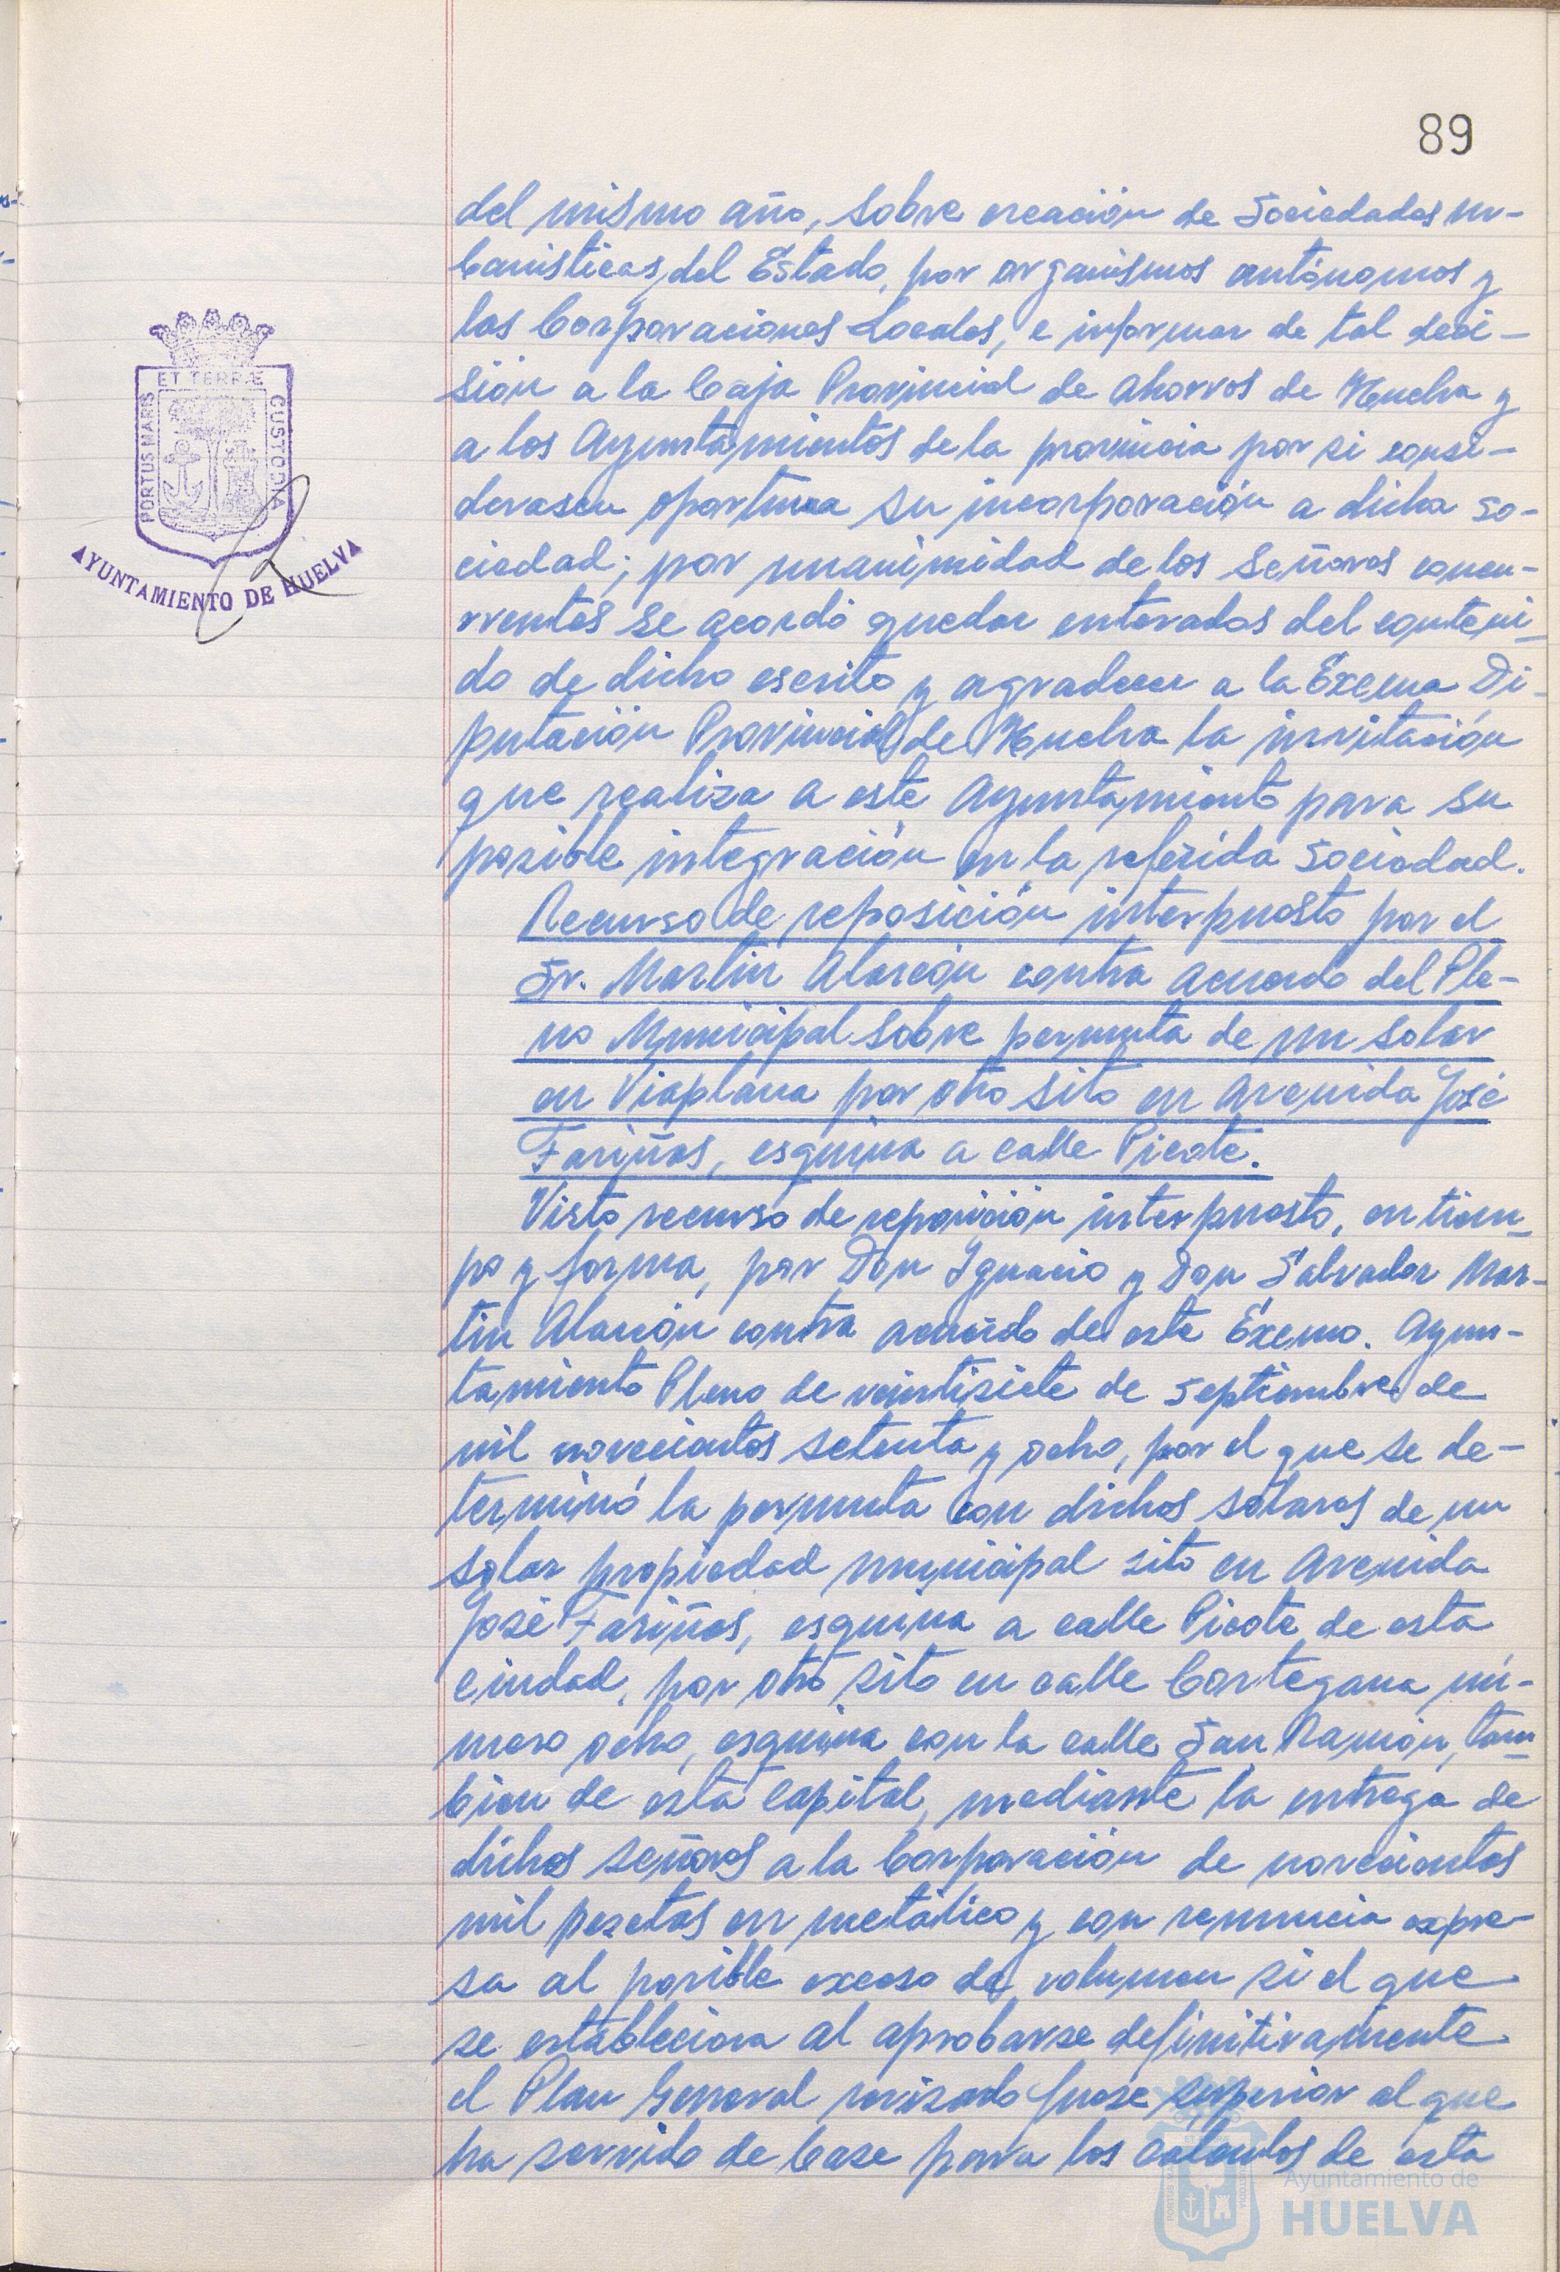 89
del mismo año, sobre creación de Sociedades ur-
banísticas, del Estado, por organismos autónomos y
las Corporaciones Locales, e informar de tal deci-
sión a la Caja Provincial de Ahorros de Huelva y
a los Ayuntamientos de la provincia por si consi-
derasen oportuna su incorporación a dicha so-
ciedad; por unanimidad de los Señores concu-
rrentes se acordó quedar enterados del conteni-
do de dicho escrito y agradecer a la Excma Di-
putación Provincial de Huelva la invitación
que realiza a este Ayuntamiento para su
posible integración en la referida Sociedad.
Recurso de reposición interpuesto por el
Sr. Martin Alarcón contra acuerdo del Ple-
no Municipal sobre permuta de un solar
en Viaplana por otro sito en Avenida José
Fariñas, esquina a calle Picote.
Visto recurso de reposición interpuesto, en tiem-
po y forma, por Don Ignacio y Don Salvador Mar-
tin Alarcón contra acuerdo de este Excmo. Ayun-
tamiento Pleno de veintisiete de Septiembre de
mil novecientos setenta y ocho, por el que se de-
terminó la permuta con dichos señores de un
solar propiedad municipal sito en Avenida
José Fariñas, esquina a calle Picote de esta
ciudad, por otro sito en calle Cortegana nú-
mero ocho, esquina con la calle San Ramón, tam-
bien de esta Capital, mediante la entrega de
dichos señores a la Corporación de novecientas
mil pesetas en metálico y con renuncia expre-
sa al posible exceso de volumen si el que
se estableciera al aprobarse definitivamente
el Plan General revisado fuese superior al que
ha servido de base para los calculos de esta
PORTUS MARIS ET TERRÆ CUSTODIA
AYUNTAMIENTO DE HUELVA
Ayuntamiento de
HUELVA